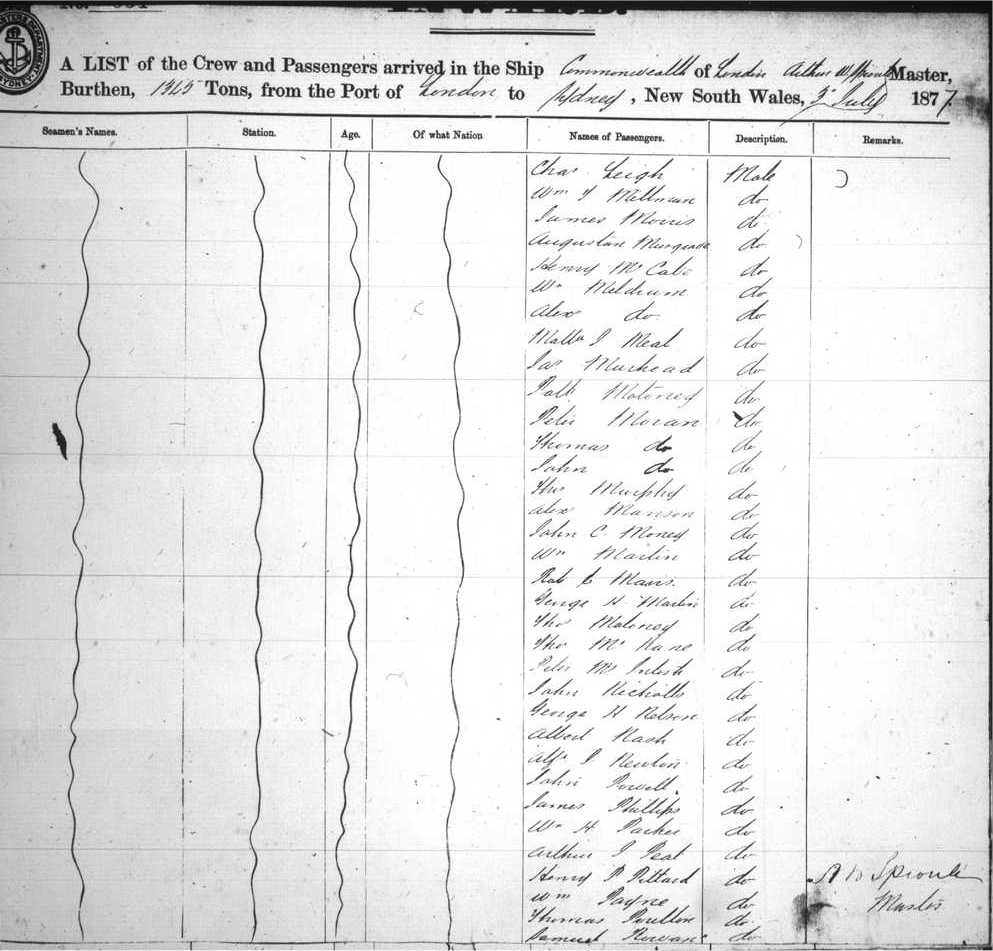 A LIST of the Crew and Passengers arrived in the Ship Commonwealth of London Arthur W Sproule Master,
Burthen, 1325 Tons, from the Port of London to Sydney, New South Wales, 3d July 1877.
Seamen's Names. Station. Age. Of what Nation Names of Passengers. Description. Remarks.
Chas Leigh Male
Wm J Millman do
James Morris do
Augustin do
Henry McCabe do
Wm Meldrum do
Alex do do
Matt J Meal do
Jas Muirhead do
Patk Moloney do
Peter Moran do
Thomas do do
John do do
Thos Murphy do
Alex Manson do
John C. Money do
Wm Martin do
Robt do
George H Martin do
Thos Moloney do
Thos McKane do
Peter Mc do
John Nicholls do
George H Nelson do
Albert Nash do
Alfd J Newton do
John Powell. do
James Phillips do
Wm H Parker do
Arthur J Peat do
Henry P Pittard do A W Sproule
Wm Payne do Master
Thomas Poulton do
Samuel Rowan do